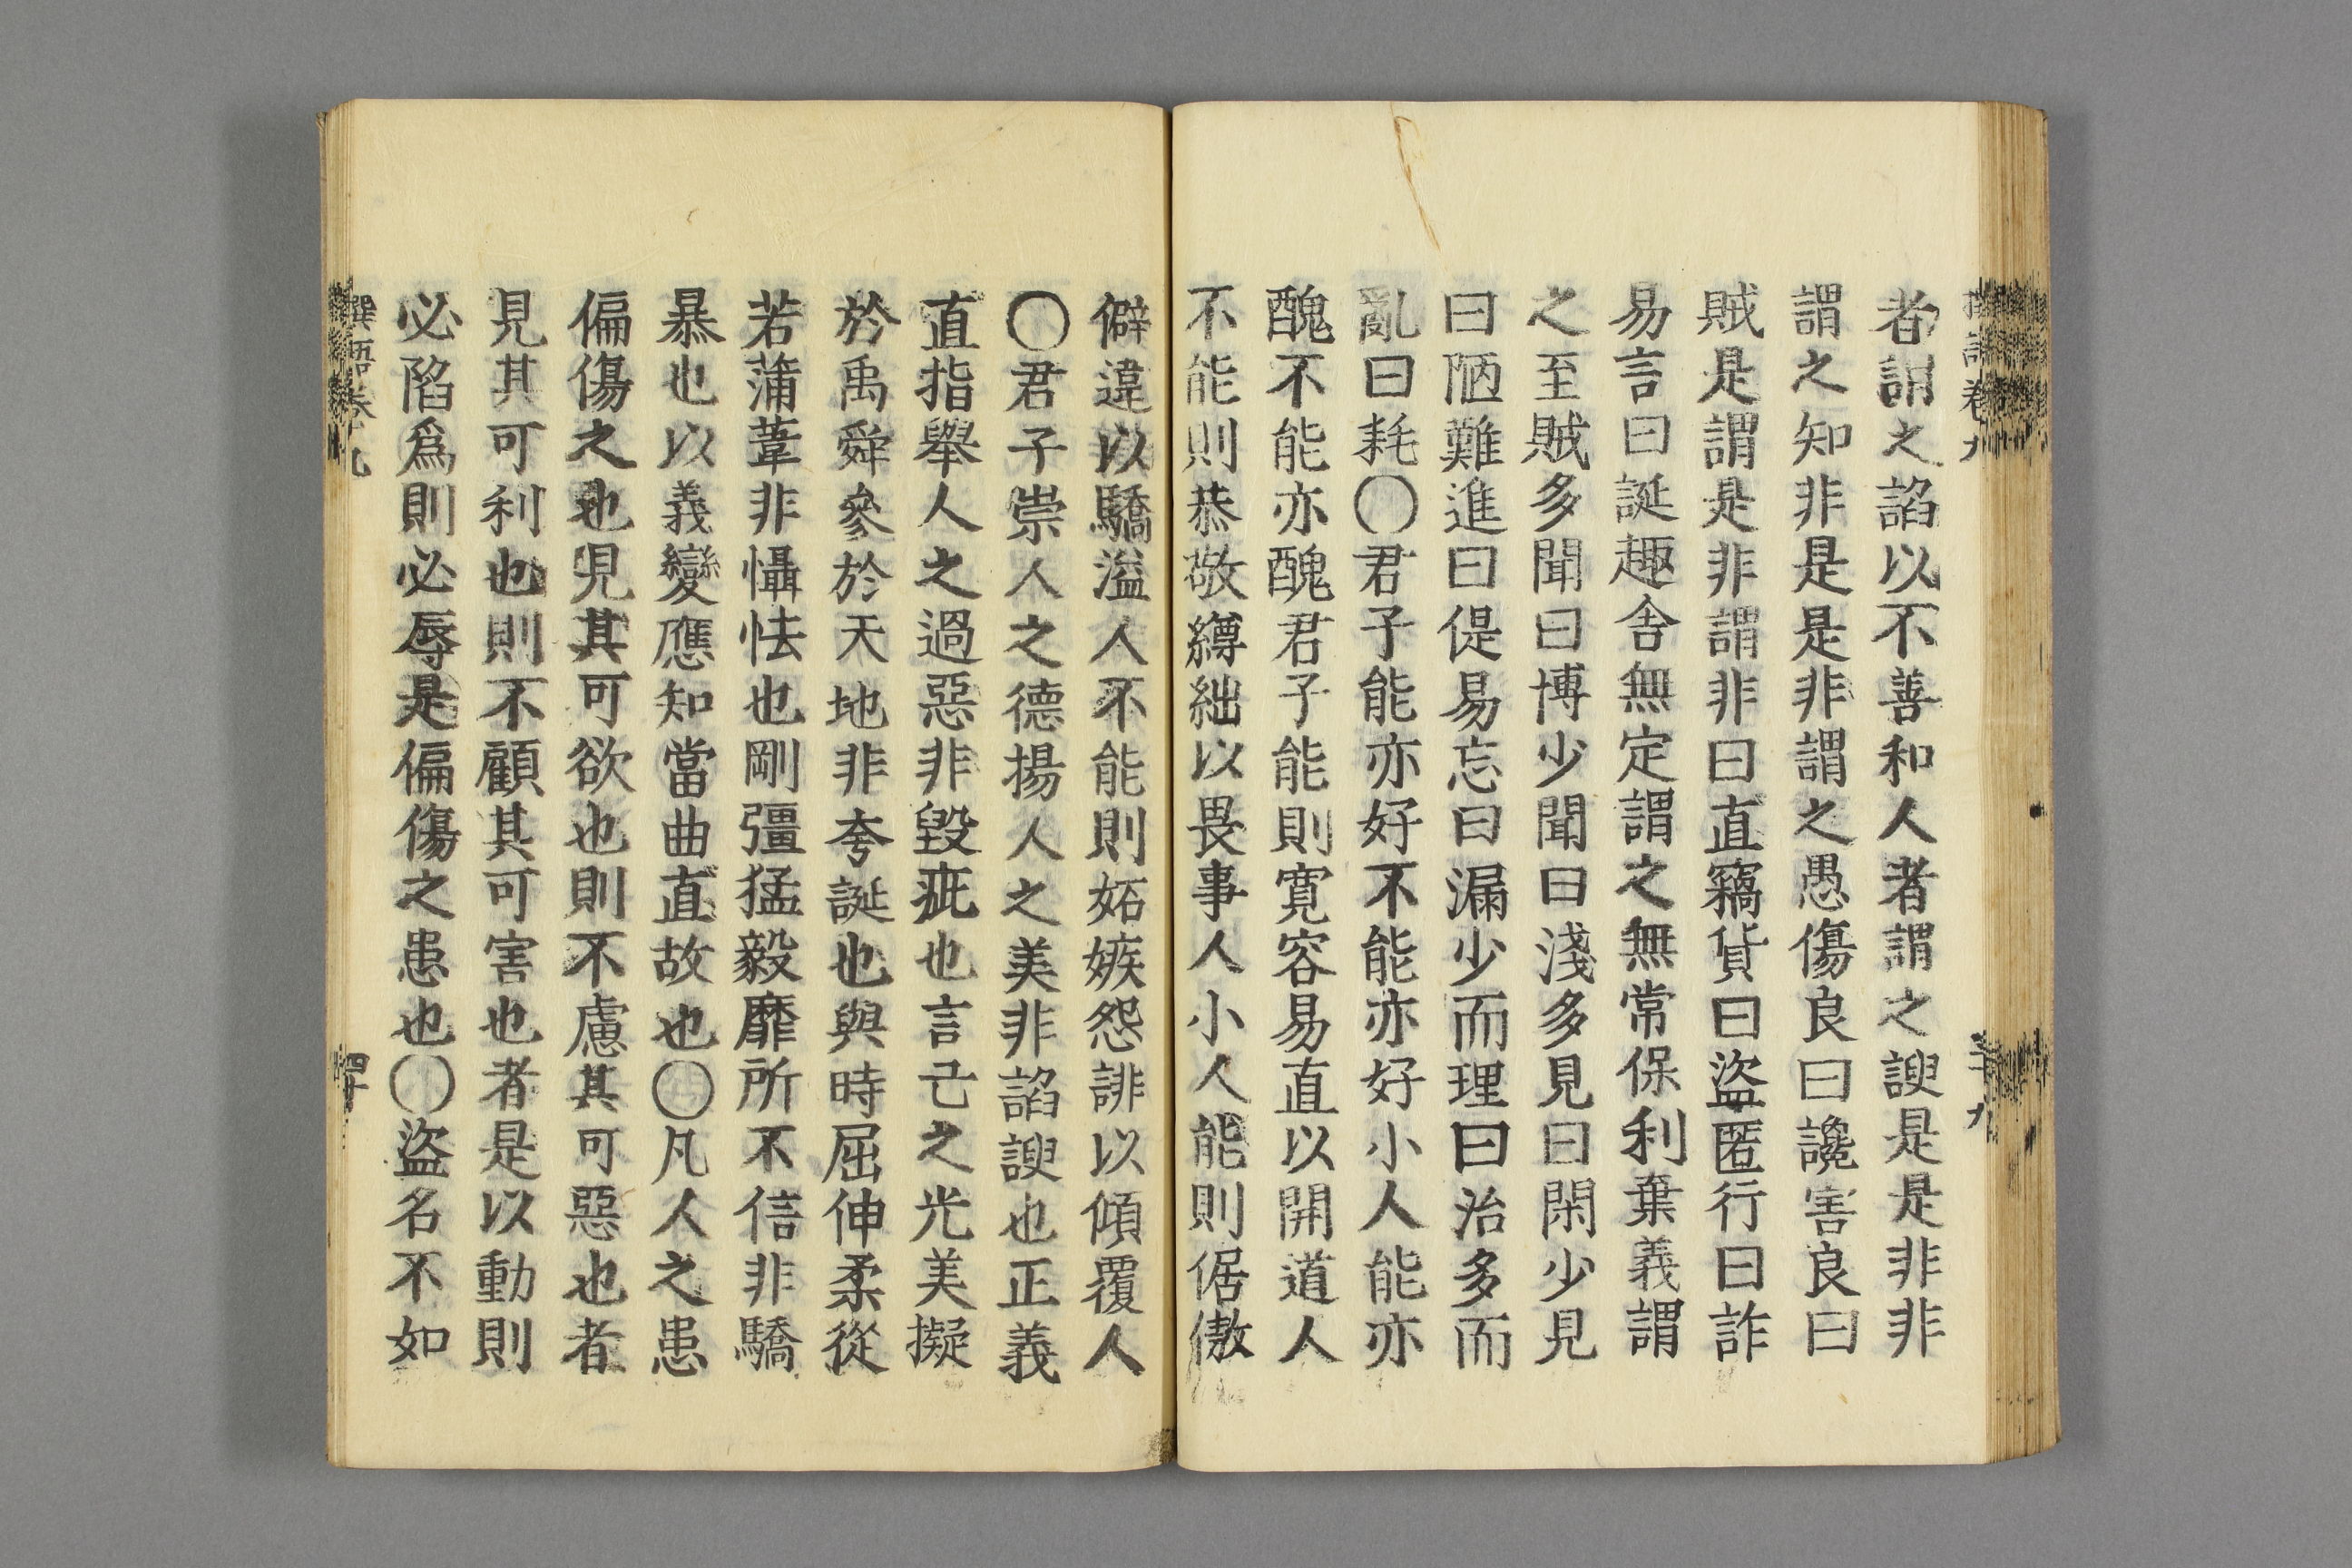 者謂之諂以不善和人者謂之諛是是非非
謂之知非是是非謂之愚傷良曰讒害良曰
賊是謂是非謂非曰直竊貨曰盜匿行曰詐
易言曰誕趣舍無定謂之無常保利棄義謂
之至賊多聞曰博少聞曰淺多見曰閑少見
曰陋難進曰偍易忘曰漏少而理曰治多而
亂曰耗〇君子能亦好不能亦好小人能亦
醜不能亦醜君子能則寬容易直以開道人
不能則恭敬繜絀以畏事人小人能則倨傲
僻違以驕溢人不能則妬嫉怨誹以傾覆人
〇君子崇人之德揚人之美非諂諛也正義
直指舉人之過惡非毀疵也言己之光美擬
於禹舜參於天地非夸誕也與時屈伸柔從
若蒲葦非懾怯也剛彊猛毅靡所不信非驕
暴也以義變應知當曲直故也〇凡人之患
偏傷之也見其可欲也則不慮其可惡也者
見其可利也則不顧其可害也者是以動則
必陷爲則必辱是偏傷之患也〇盜名不如
卷九
四十